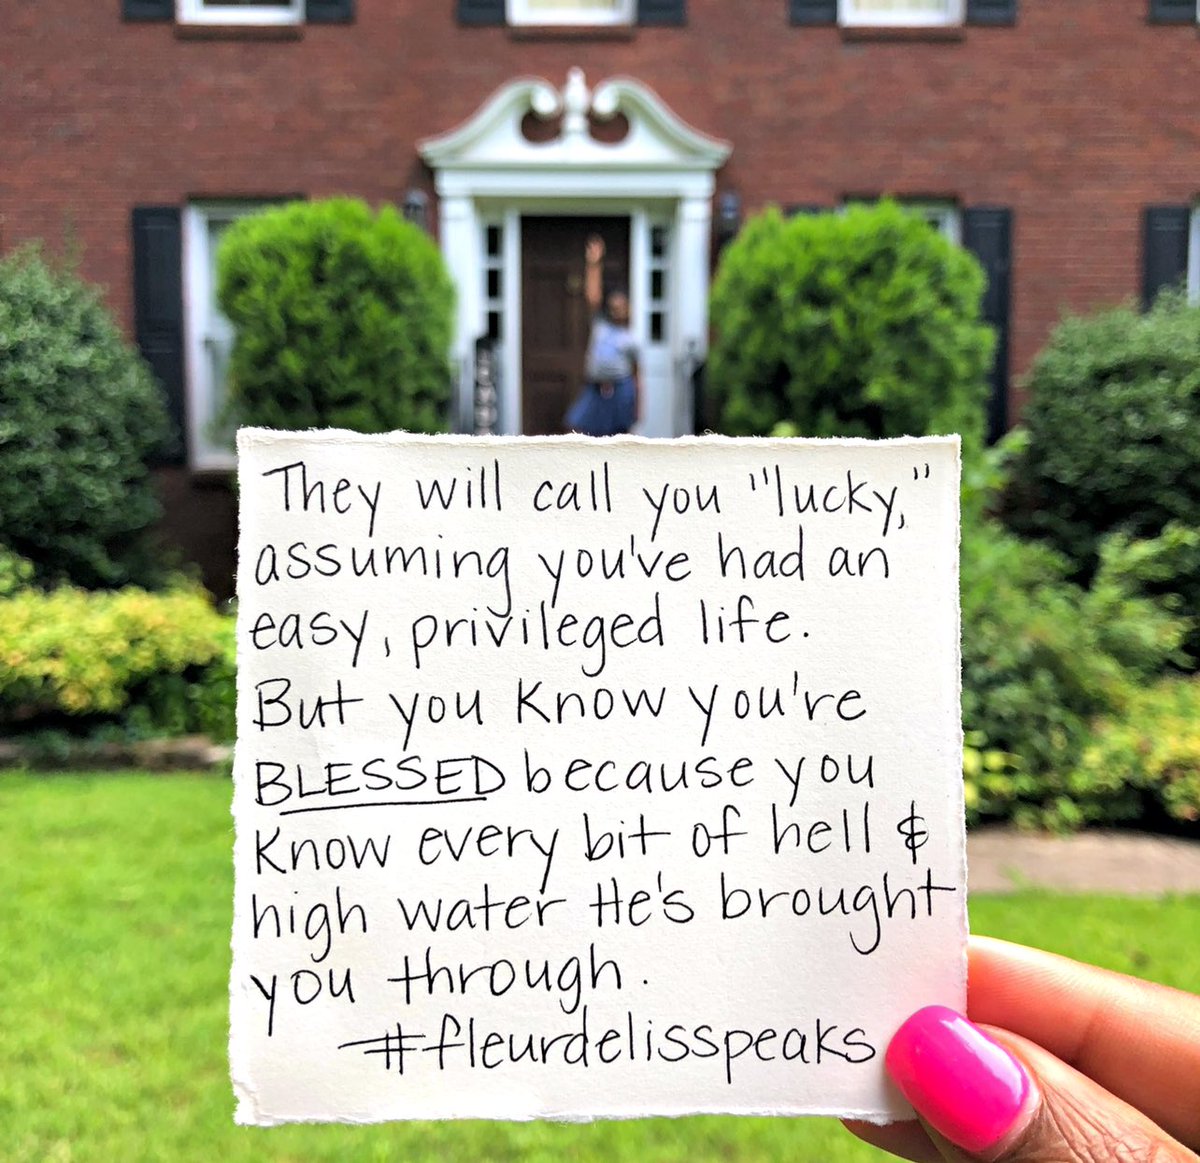 They will call you "lucky,"
assuming you've had an
easy, privileged life.
But you know you're
BLESSED because you
know every bit of hell &
high water He's brought
you through.
#fleurdelisspeaks